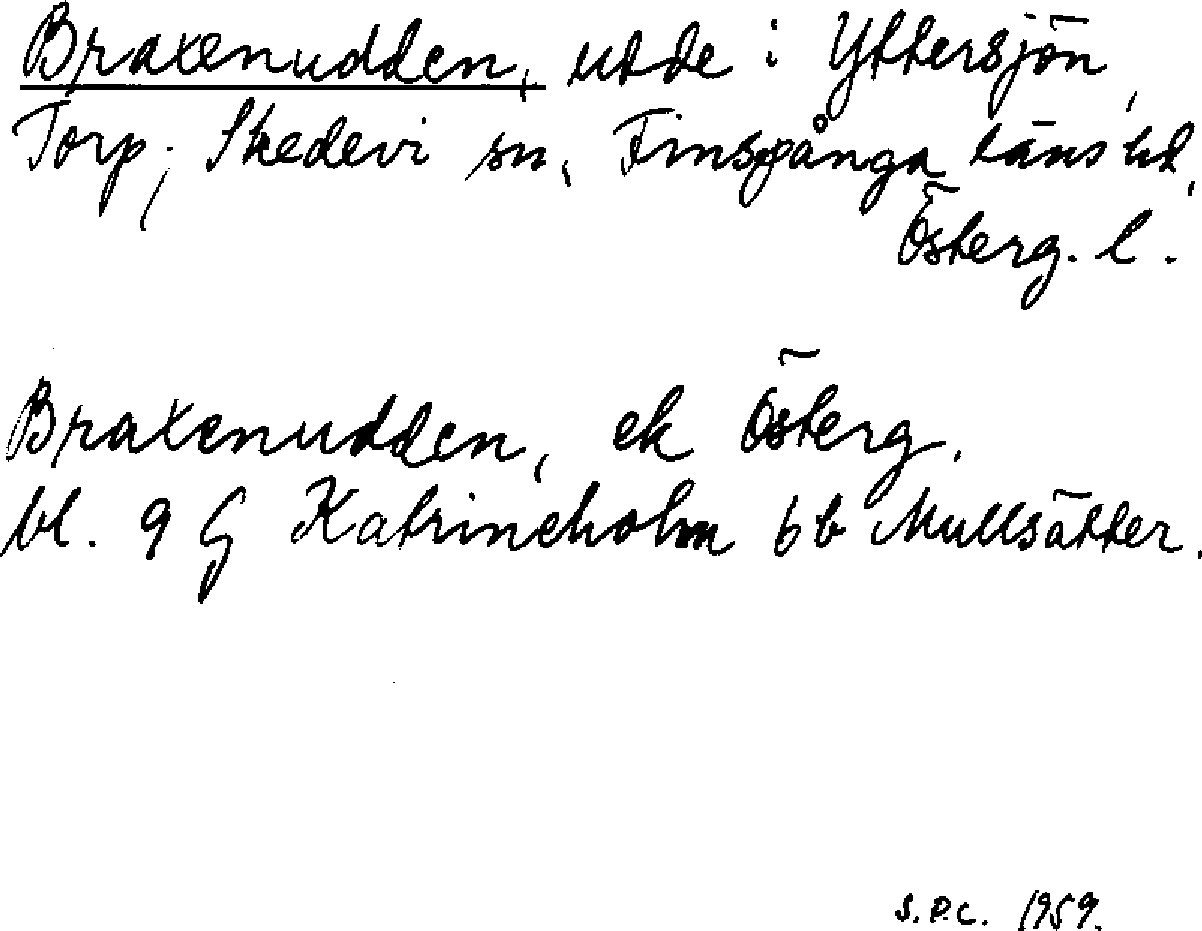 Braxenudden, udde i Yttersjön,
Torp; Skedevi sn, Finspånga läns hd,
Österg. l.
Braxenudden, ek Österg.
bl. 9 G Katrineholm 6b Mullsätter.
S.P.C. 1959.